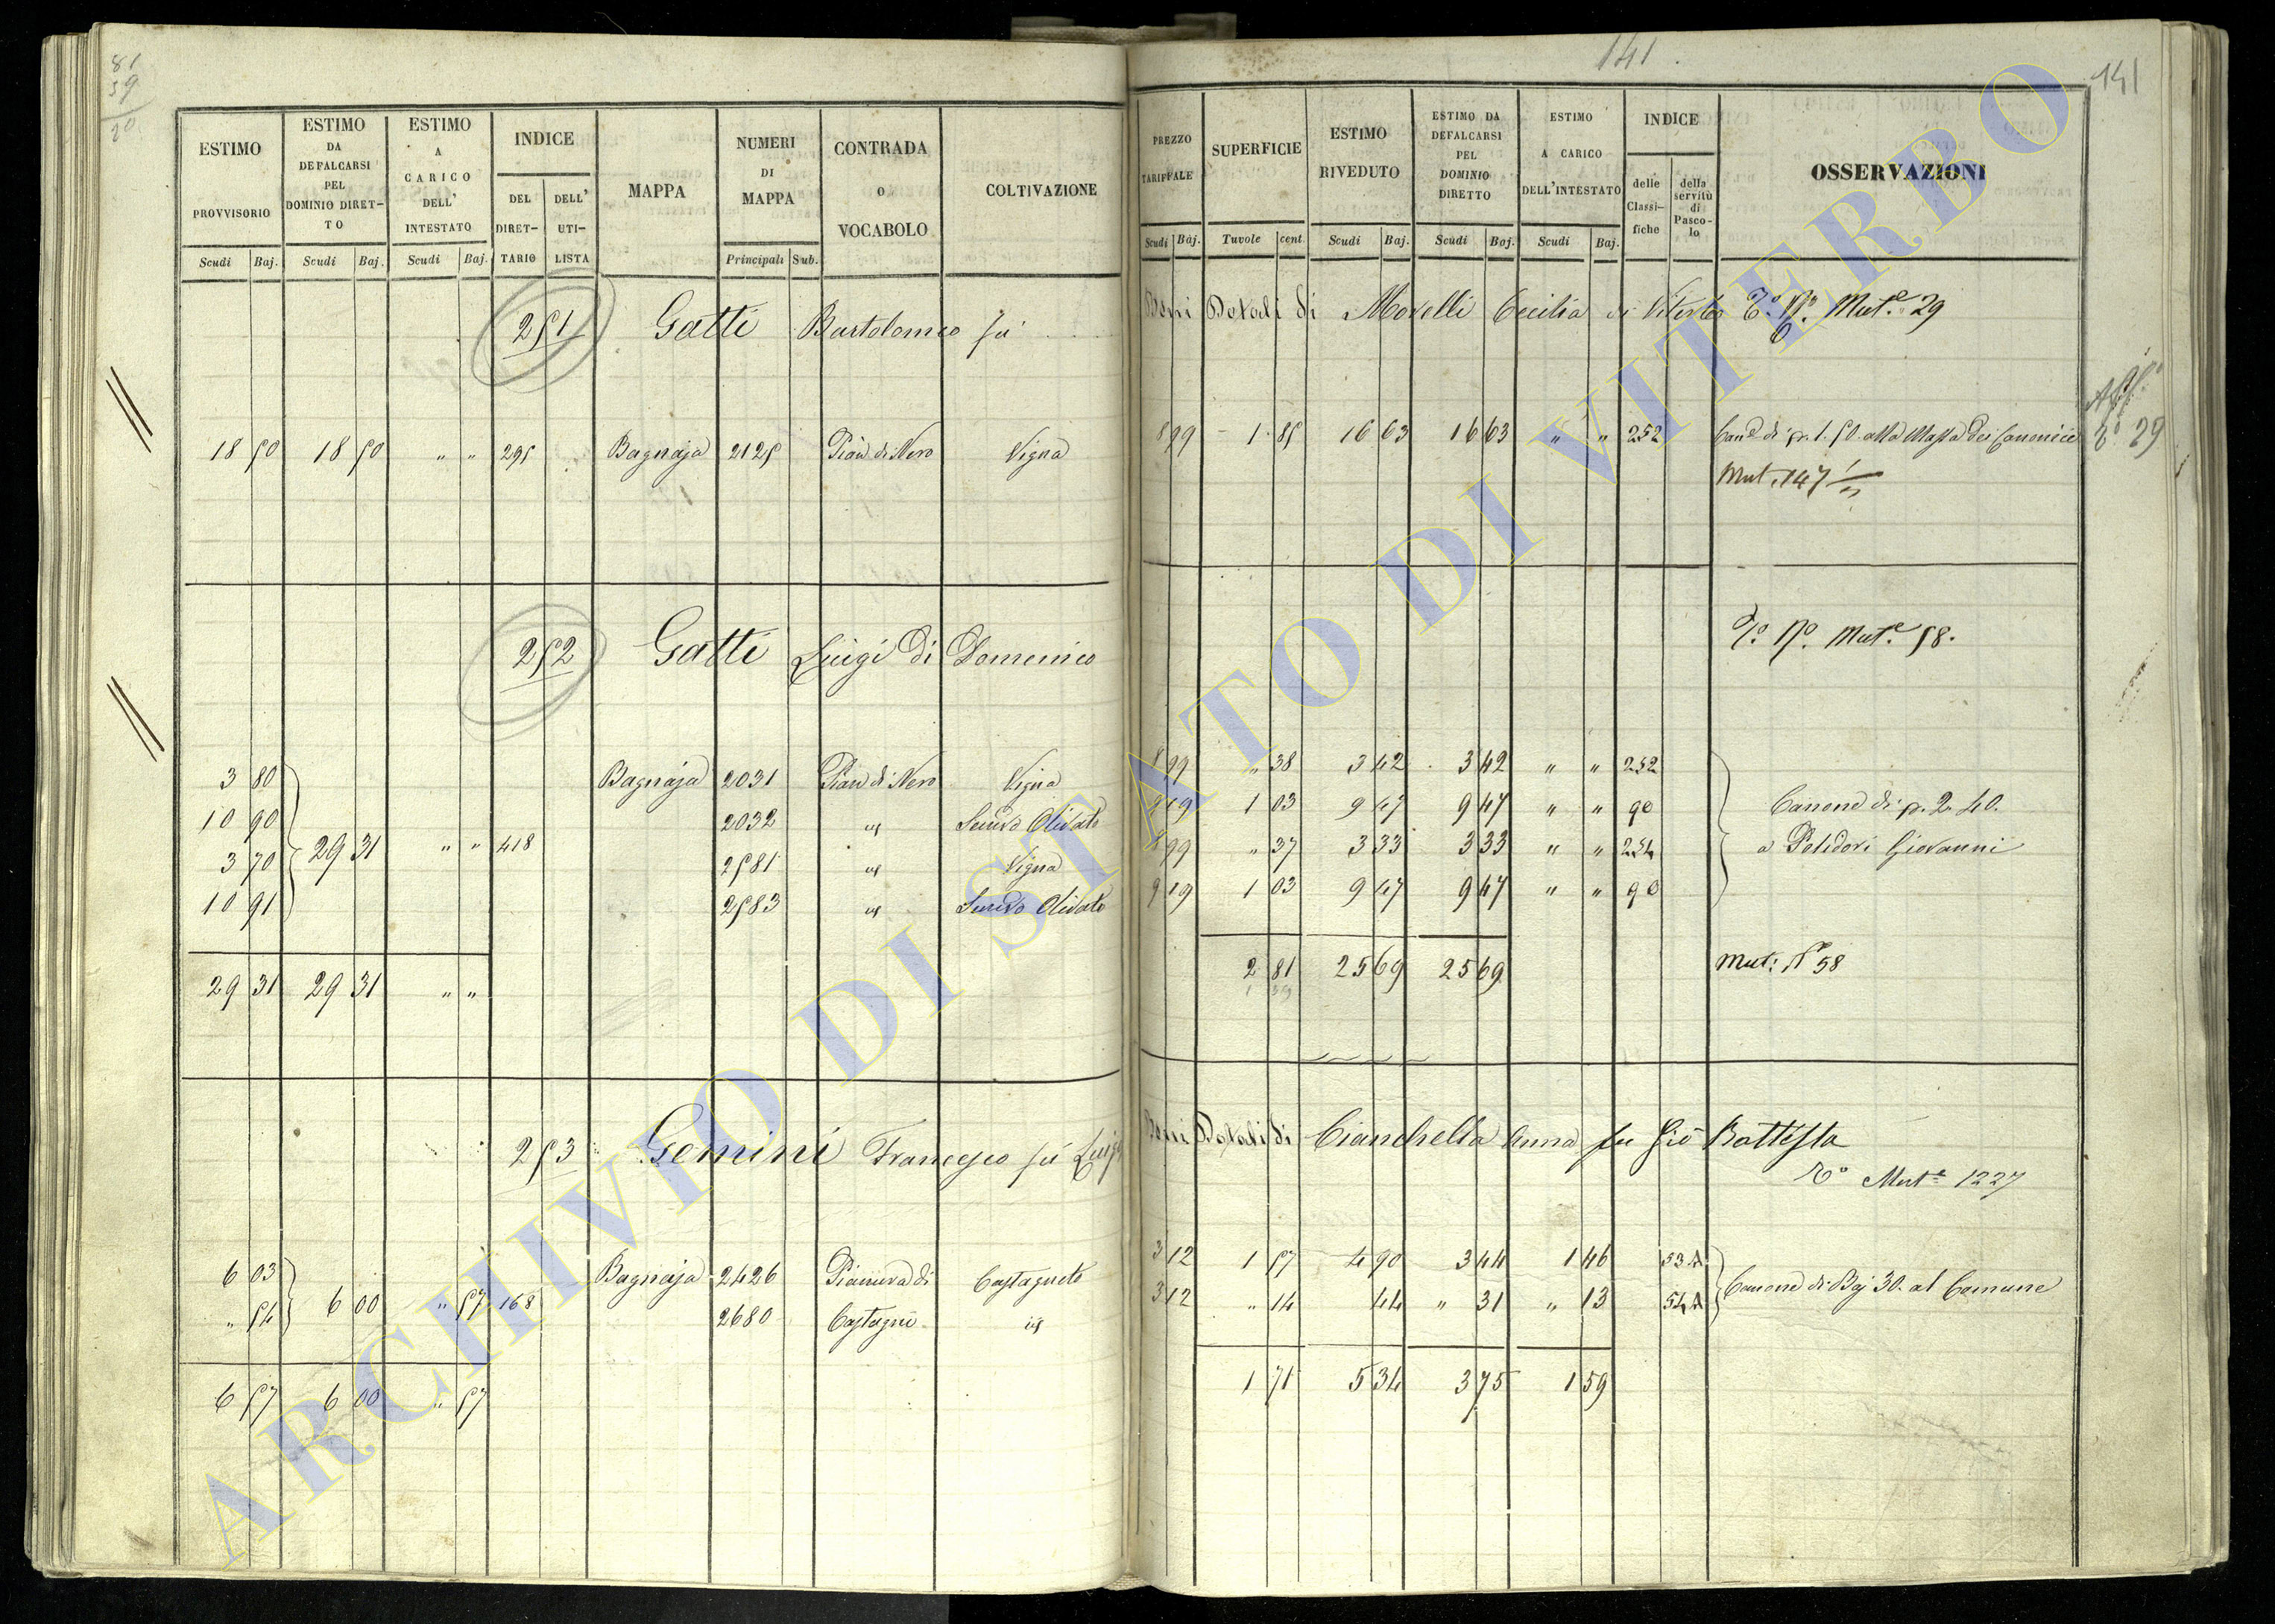 141
141
ESTIMO PROVVISORIO
ESTIMO DA DEFALCARSI PEL DOMINIO DIRET-TO
ESTIMO A CARICO DELL' INTESTATO
INDICE
DEL DIRET-TARIO
DELL' UTI-LISTA
MAPPA
NUMERI DI MAPPA
CONTRADA O VOCABOLO
COLTIVAZIONE
PREZZO TARIFFALE
SUPERFICIE
ESTIMO RIVEDUTO
ESTIMO DA DEFALCARSI PEL DOMINIO DIRETTO
ESTIMO A CARICO DELL'INTESTATO
INDICE
delle Classi-fiche
della servitù di Pasco-lo
OSSERVAZIONI
Scudi Baj. Scudi Baj. Scudi Baj. Principali Sub. Scudi Baj. Tavole cent. Scudi Baj. Scudi Baj. Scudi Baj.
251 Gatti Bartolomeo fu Beni Dotali di Morelli Cecilia di Viterbo Mut.e 29
18 50 18 50 " " 295 Bagnaja 2125 Pian di Nero Vigna 8 99 1 85 16 63 16 63 " " 252 Can.e di p. 1.50 alla Massa dei Canonici
29
Mut. 147
252 Gatti Luigi di Domenico Mut.e 58.
3 80 Bagnaja 2031 Pian di Nero Vigna 8 99 " 38 3 42 3 42 " " 252
10 90 2032 id Semivo Olivato 9 19 1 03 9 47 9 47 " " 90 Canone di p. 2.40.
3 70 29 31 " " 418 2581 id Vigna 8 99 " 37 3 33 3 33 " " 254 a Polidori Giovanni
10 91 2583 id Semivo Olivato 9 19 1 03 9 47 9 47 " " 90
29 31 29 31 " " 2 81 25 69 25 69 Mut: N° 58
253 Gemini Francesco fu Luigi Beni Dotali di Cianchella Anna fu Gio Battista
Mut.e 1227
6 03 Bagnaja 2426 Pianura di Castagneto 3 12 1 57 4 90 3 44 1 46 53 A
" 54 6 00 " 57 168 2680 Castagni id 3 12 " 14 44 " 31 " 13 54 A Canone di Baj 30. al Comune
6 57 6 00 " 57 1 71 5 34 3 75 1 59
ARCHIVIO DI STATO DI VITERBO